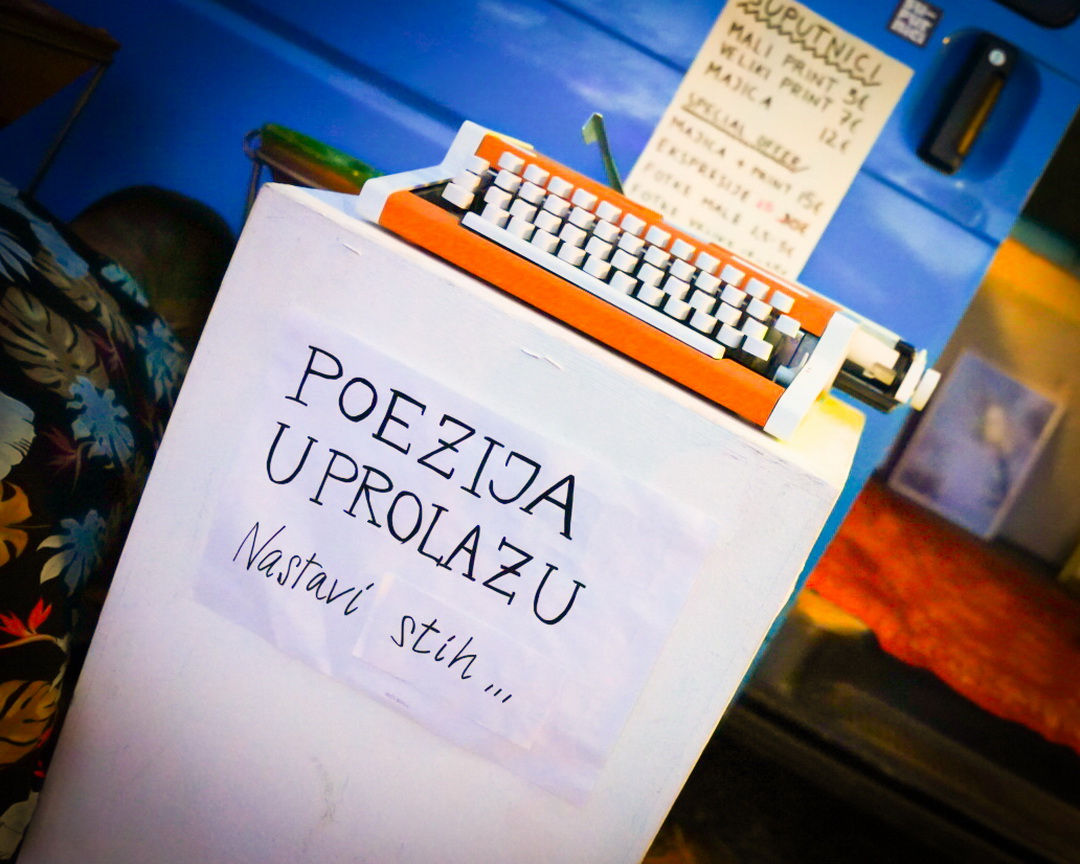 SUPUTNICI
MALI PRINT 5€
VELIKI PRINT 7€
MAJICA 12€
SPECIAL OFFER
MAJICA + PRINT 15€
EKSPRESIJE 30€
FOTKE MALE
FOTKE
POEZIJA
U PROLAZU
Nastavi stih...